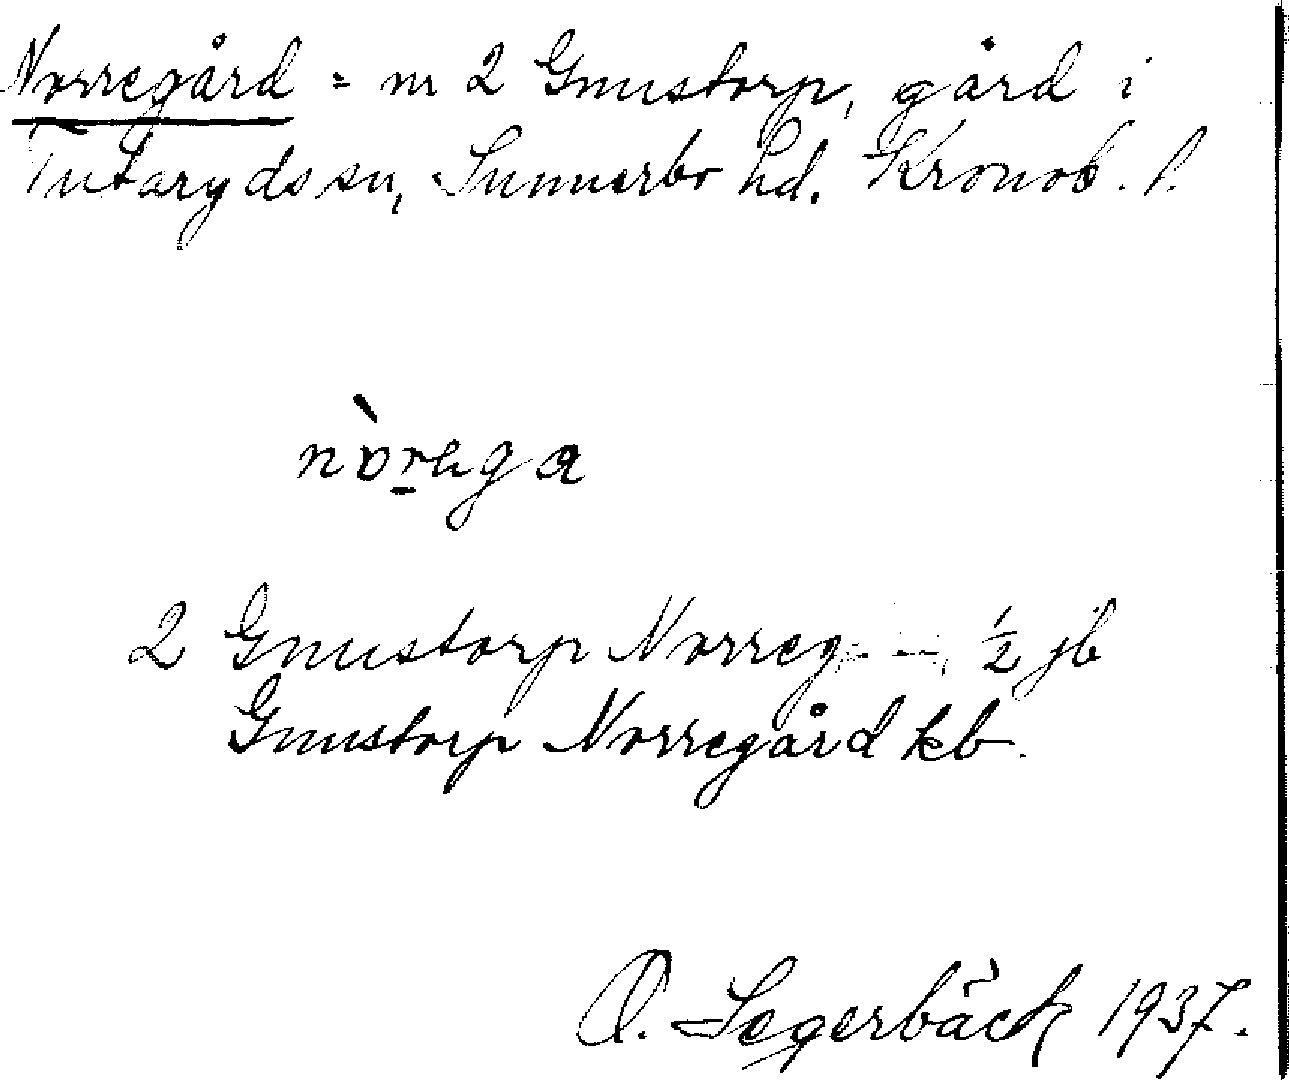 Norregård = nr 2 Gnustorp, gård i
Tutaryds sn, Sunnerbo hd. Kronob. l.
2 Gnustorp Norreg. — ½ jb
Gnustorp Norregård kb.
O. Segerbäck 1937.